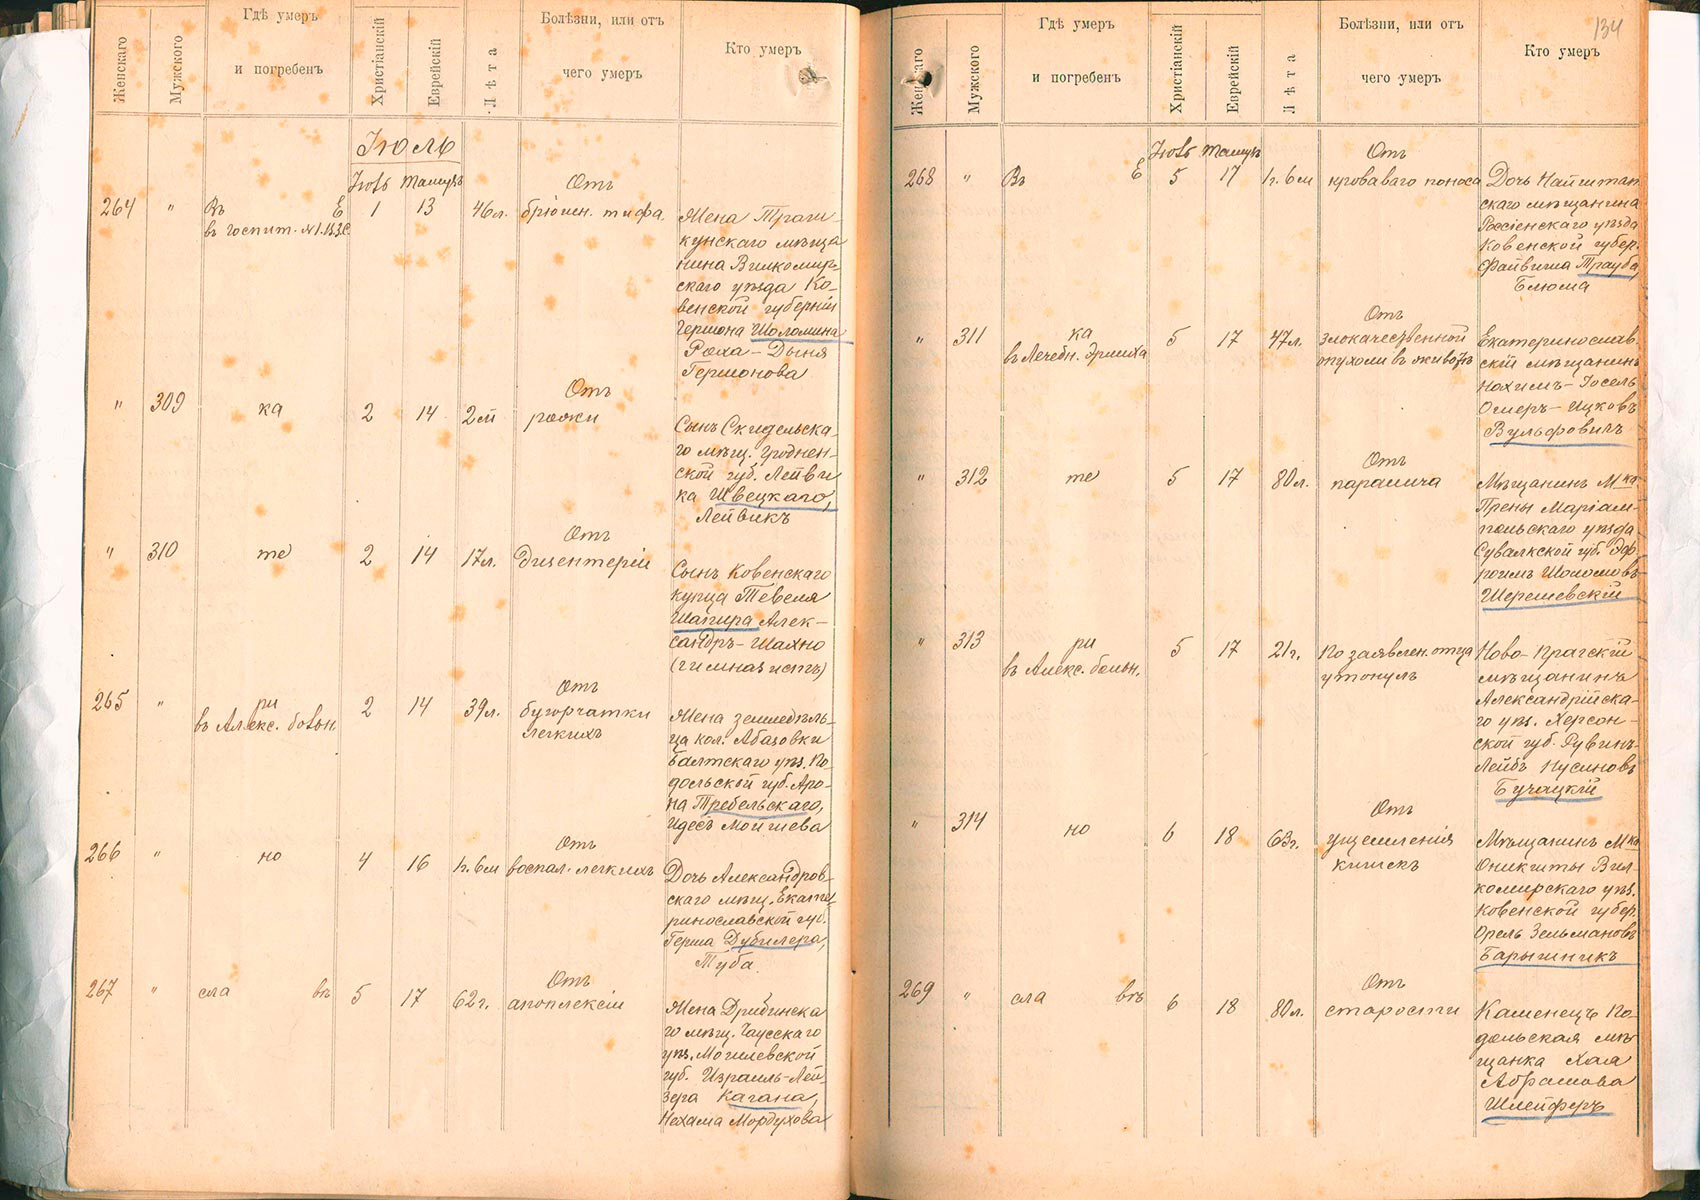 Женскаго
Мужского
Гдѣ умеръ
и погребенъ
Христіанскій
Еврейскій
Лѣта
Болѣзни, или отъ
чего умеръ
Кто умеръ
Іюль
Іюль Тамузъ
264 " Въ Е 1 13 46 л.
въ госпит.
Отъ
брюшн. тифа
Жена Траш-
кунскаго мѣща
нина Вилкомир-
скаго уѣзда Ко-
венской губерніи
Гершона Шоломина
Роха-Дыня
Гершонова
" 309 ка 2 14 2 м
Отъ
рожи
Сынъ Скидельска-
го мѣщ. Гроднен-
ской губ. Лейви
ка Швецкаго,
Лейвикъ
" 310 те 2 14 17 л.
Отъ
Дизентеріи
Сынъ Ковенскаго
купца Тевеля
Шапира Алек-
сандръ-Шахно
(гимназистъ)
265 " ри 2 14 39 л.
въ Алекс. больн.
Отъ
бугорчатки
легкихъ
Жена земледѣль-
ца кол. Абазовки
Балтскаго уѣз. По-
дольской губ. Аро-
на Требельскаго,
Идесъ Мошшева
266 " но 4 16 1 г. 6 м
Отъ
воспал. легкихъ
Дочь Александров-
скаго мѣщ. Екате-
ринославской губ.
Герша Дубилера,
Туба
267 " сла въ 5 17 62 г.
Отъ
апоплексіи
Жена Дрибинска
го мѣщ. Чаусскаго
уѣз. Могилевской
губ. Израиль-Лей-
зера Кагана,
Нехама Мордухова
134
Женскаго
Мужского
Гдѣ умеръ
и погребенъ
Христіанскій
Еврейскій
Лѣта
Болѣзни, или отъ
чего умеръ
Кто умеръ
Іюль Тамузъ
268 " Въ Е 5 17 1 г. 6 м
Отъ
кроваваго поноса
Дочь Найштат
скаго мѣщанина
Россіенскаго уѣзда
Ковенской губер.
Файвиша Трауба,
Блюма
" 311 ка 5 17 47 л.
въ Лечебн. Эрлиха
Отъ
злокачественной
опухоли въ животѣ
Екатеринослав-
скій мѣщанинъ
Нохимъ-Іосель
Ошеръ-Ицковъ
Вульфовичъ
" 312 те 5 17 80 л.
Отъ
паралича
Мѣщанинъ Мка
Прены Маріам-
польскаго уѣзда
Сувалкской губ. Эф-
роимъ Шоломовъ
Шерешевскій
" 313 ри 5 17 21 г.
въ Алекс. больн.
По заявлен. отца
утонулъ
Ново-Прагскій
мѣщанинъ
Александрійска-
го уѣз. Херсон-
ской губ. Рувинъ-
Лейбъ Нусиновъ
Бучацкій
" 314 но 6 18 63 г.
Отъ
ущемленія
кишекъ
Мѣщанинъ Мка
Оникшты Вил-
комирскаго уѣз.
Ковенской губер.
Орель Зельмановъ
Барышникъ
269 " сла въ 6 18 80 л.
Отъ
старости
Каменецъ По-
дольская мѣ-
щанка Хая
Абрамова
Шлейферъ